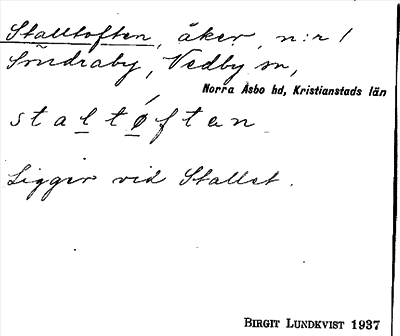 Stalltoften, åker, n:r 1
Söndraby, Vedby sn,
Norra Åsbo hd, Kristianstads län
staltøften
Ligger vid Stallet.
BIRGIT LUNDKVIST 1937